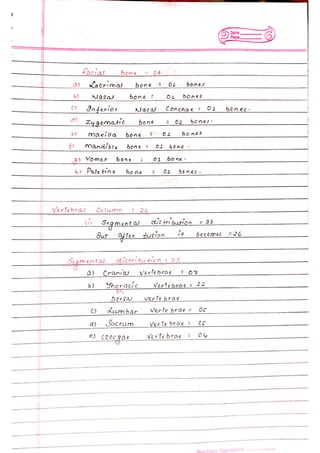 Date
Page
Facial bone = 14
a) Lacrimal bone = 02 bones
b) Nasal bone = 02 bones
c) Inferior Nasal Conchae = 02 bones.
d) Zygomatic bone = 02 bones.
e) maxilla bone = 02 bones
f) mandible bone = 01 bone.
g) Vomer bone = 01 bone.
h) Palatine bone = 02 bones.
Vertebral Column = 26
Segmental distribution = 33
But after fusion it becomes = 26
Segmental distribution = 33
a) Cranial vertebrae = 07
b) Thoracic Vertebrae = 12
or
Dorsal vertebrae
c) Lumbar Vertebrae = 05
d) Sacrum Vertebrae = 05
e) Coccyges Vertebrae = 04
Teacher's Signature